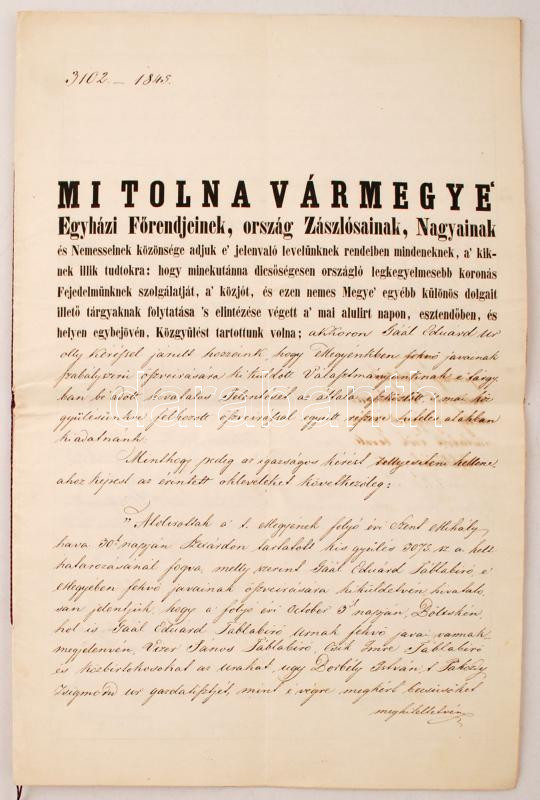 3102. — 1845.
MI TOLNA VÁRMEGYE'
Egyházi Főrendjeinek, ország Zászlósainak, Nagyainak
és Nemesseinek közönsége adjuk e' jelenvaló levelünknek rendeiben mindeneknek, a' kik-
nek illik tudtokra: hogy minekutánna dicsőségesen országló legkegyelmesebb koronás
Fejedelmünknek szolgálatját, a' közjót, és ezen nemes Megye' egyébb különös dolgait
illető tárgyaknak folytatása 's elintézése végett a' mai alulirt napon, esztendőben, és
helyen egybejövén, Közgyűlést tartottunk volna; akkoron Gaál Eduard Ur
olly kéréssel járult hozzánk, hogy Megyénkben fekvő javainak
szabályszerű összeirására kiküldött Választmányunknak e' tárgy-
ban beadott hivatalos Jelentését az általa készített 's mai köz
gyülésünkre felhozott összeirással együtt részére hiteles alakban
kiadatnánk.
Minthogy pedig az igazságos kérést tellyesiteni kellene,
ahoz képest az érintett okleveleket következőleg:
darabanth
"Alolirottak a' t. Megyének folyó évi Szent Mihály
hava 30ik napján Szexárdon tartatott kis gyűlés 3073 sz. a. kelt
határozásánál fogva, melly szerént Gaál Eduárd Táblabiró, e'
Megyében fekvő javainak összeirására kiküldetvén hivatalo-
san jelentjük, hogy a' folyó évi October 3ik napján, Dötskén,
hol is Gaál Eduard Táblabiró Urnak fekvő javai vannak
megjelenvén, Vizer János Táblabiró, Csik Imre Táblabiró
és közbirtokosokat az urakat, ugy Dorbély István, t. Pakozy
Zsigmond ur gazdatisztjét, mint e' végre megkért becsüsöket
meghiteltetvén